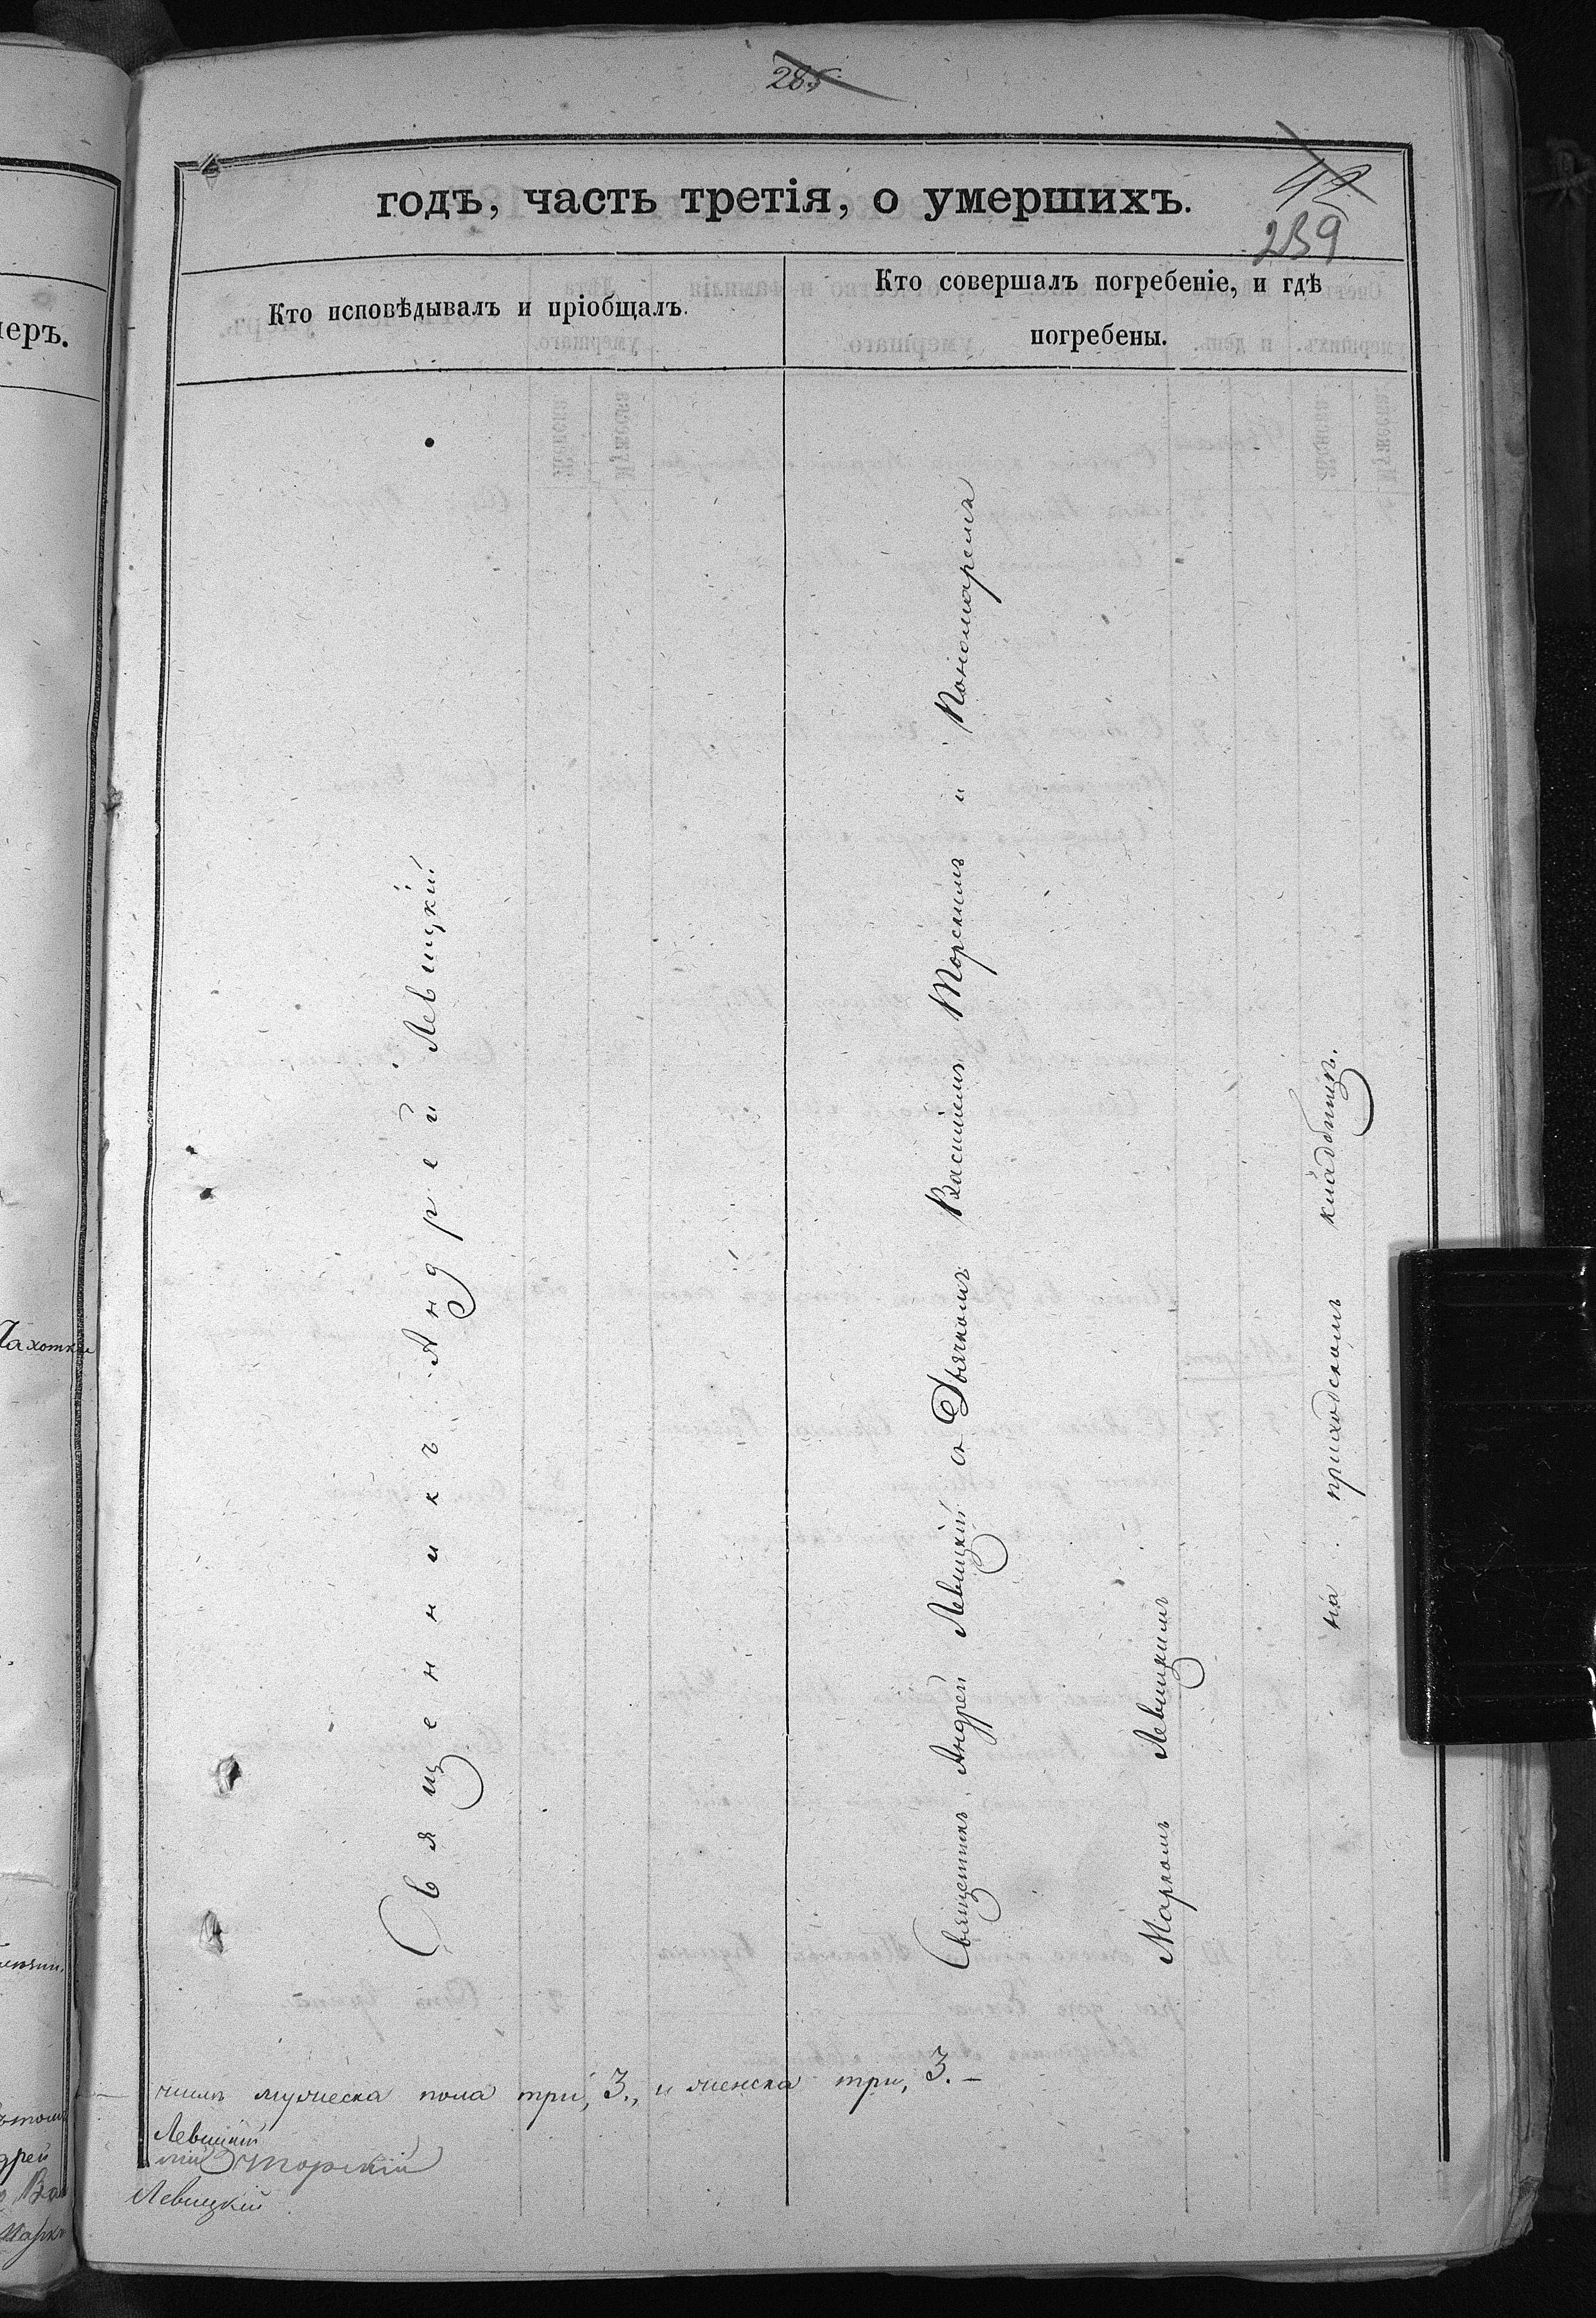 285
42
239
годъ, часть третія, о умершихъ.
Кто исповѣдывалъ и пріобщалъ.
Кто совершалъ погребеніе, и гдѣ
погребены.
меръ.
Священникъ Андрей Левицкій
Священникъ Андрей Левицкій съ Дьячкомъ Василіемъ Торскимъ и Пономаремъ
Маркомъ Левицкимъ
на приходскомъ кладбищѣ.
Чахотки
числѣ мужеска пола три, 3., и женска три, 3. –
Левицкій
лій Торскій
Левицкій
дрей
Ва
Марко